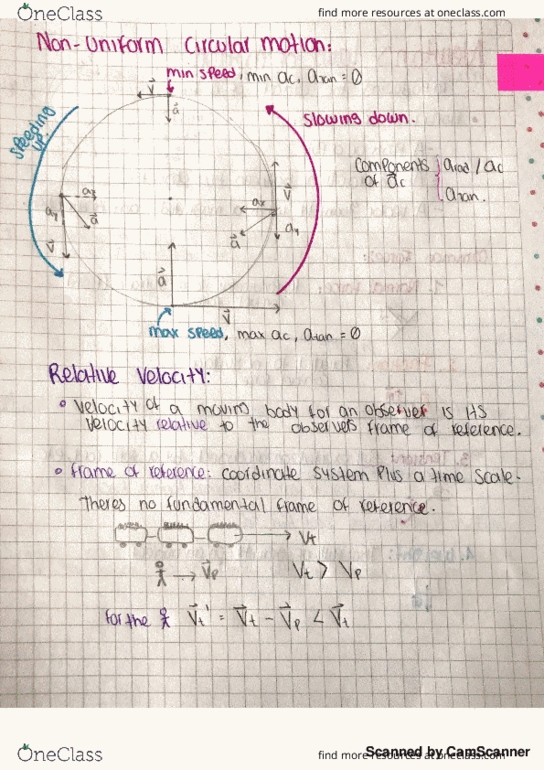 OneClass
find more resources at oneclass.com
Non-Uniform Circular motion:
min speed, min ac, atan = 0
v
a
speeding up.
slowing down.
Components of ac
arad / ac
atan.
ax
ay
a
v
ax
v
ay
a
a
v
max speed, max ac, atan = 0
Relative Velocity:
• Velocity of a moving body for an observer is its
velocity relative to the observers frame of reference.
• frame of reference: coordinate system plus a time scale.
Theres no fundamental frame of reference.
→ Vt
→ Vp
Vt > Vp
for the
Vt' = Vt - Vp < Vt
OneClass
find more resources at oneclass.com
Scanned by CamScanner